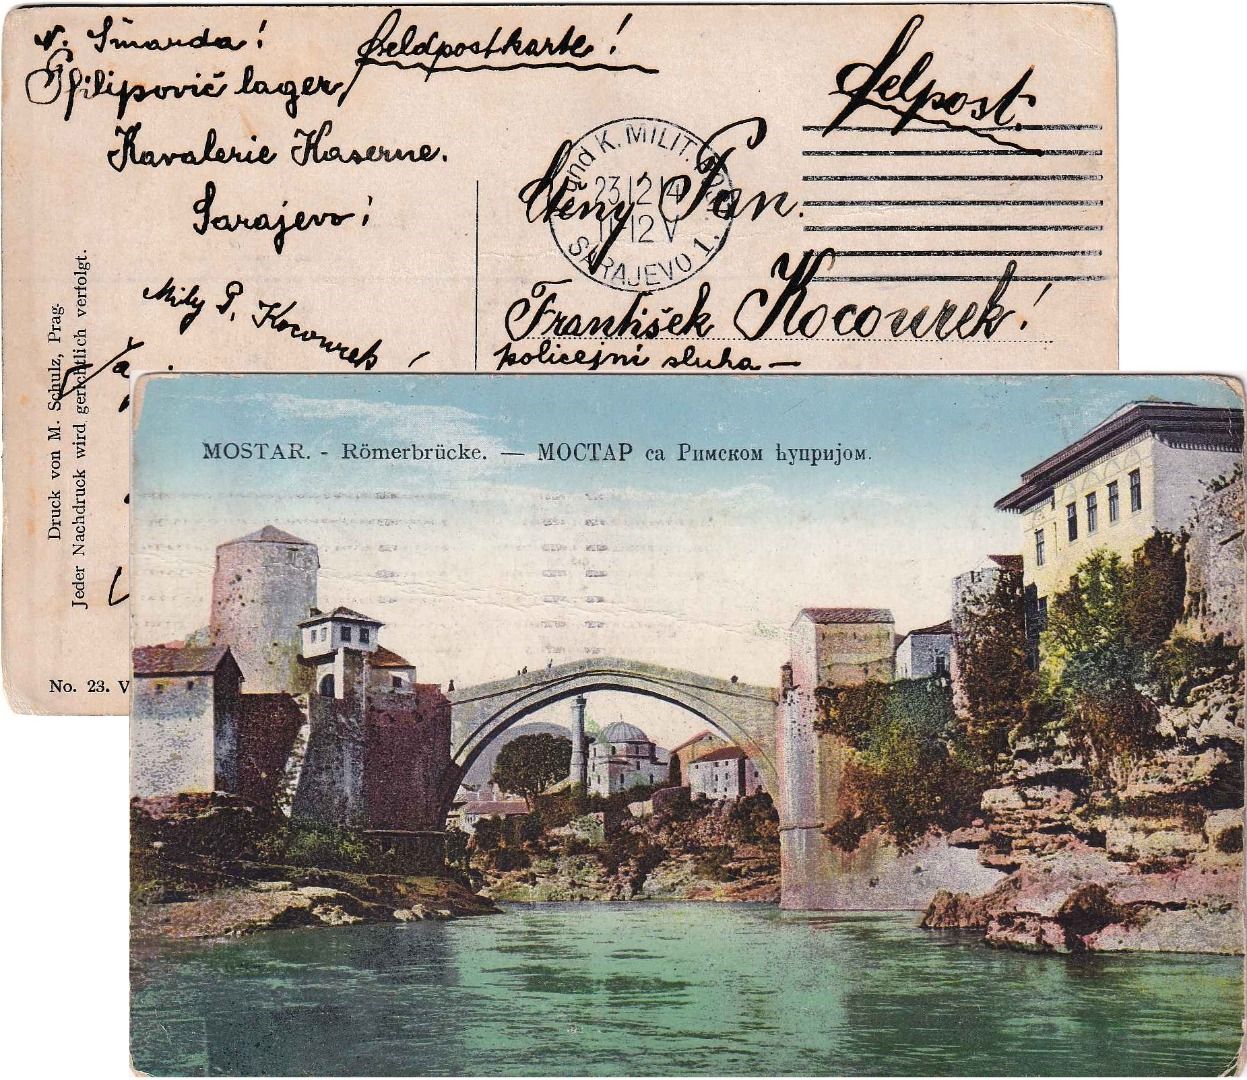 V. Šmarda!
Feldpostkarte!
Felpost.
Pfilipovič lager,
Kavalerie Kaserne.
Sarajevo!
K. und K. MILIT. POST
23 12 14
11-12 V
SARAJEVO 1.
Ctěný Pan.
František Kocourek!
policejní sluha —
Milý P. Kocourek
Druck von M. Schulz, Prag.
Jeder Nachdruck wird gerichtlich verfolgt.
No. 23. V
MOSTAR. - Römerbrücke. — МОСТАР са Римском ћупријом.